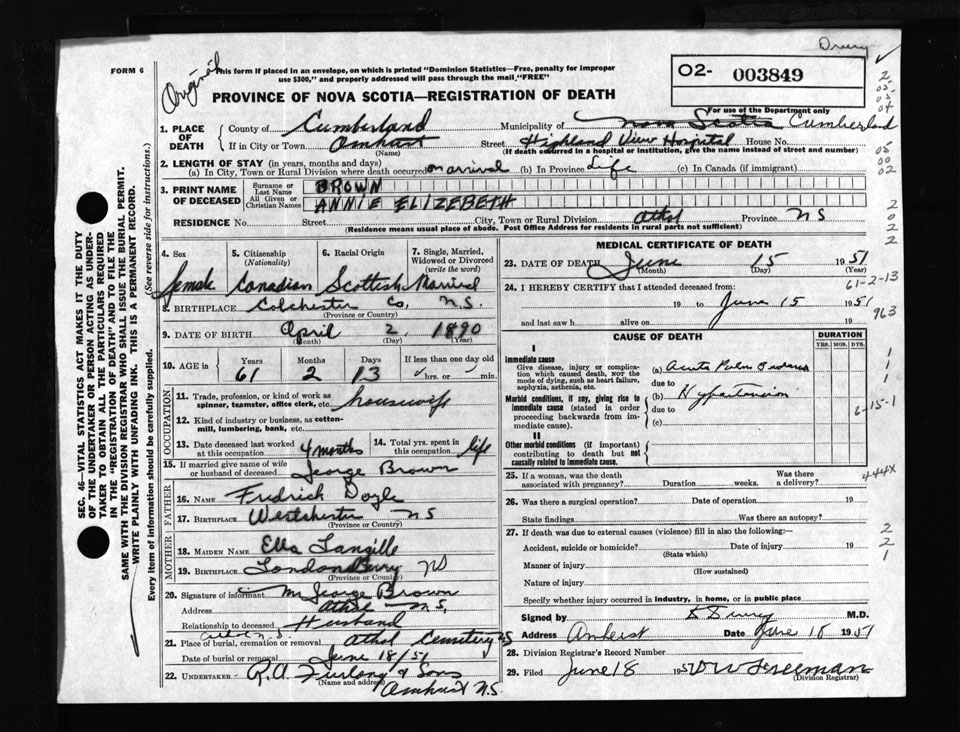 Drury
FORM 6
Original
This form if placed in an envelope, on which is printed "Dominion Statistics—Free, penalty for improper
use $300," and properly addressed will pass through the mail "FREE"
O2- 003849
For use of the Department only
PROVINCE OF NOVA SCOTIA—REGISTRATION OF DEATH
1. PLACE OF DEATH
County of Cumberland Municipality of Nova Scotia Cumberland
If in City or Town Amherst (Name) Street Highland View Hospital House No.
(If death occurred in a hospital or institution, give the name instead of street and number)
2. LENGTH OF STAY (in years, months and days)
(a) In City, Town or Rural Division where death occurred on arrival (b) In Province Life (c) In Canada (if immigrant)
3. PRINT NAME OF DECEASED
Surname or Last Name BROWN
All Given or Christian Names ANNIE ELIZEBETH
RESIDENCE No. Street City, Town or Rural Division Athol Province NS
(Residence means usual place of abode. Post Office Address for residents in rural parts not sufficient)
4. Sex female
5. Citizenship (Nationality) Canadian
6. Racial Origin Scottish
7. Single, Married, Widowed or Divorced (write the word) Married
8. BIRTHPLACE Colchester Co, N.S.
(Province or Country)
9. DATE OF BIRTH April 2, 1890
(Month) (Day) (Year)
10. AGE in Years 61 Months 2 Days 13
If less than one day old
hrs. or min.
OCCUPATION
11. Trade, profession, or kind of work as spinner, teamster, office clerk, etc. housewife
12. Kind of industry or business, as cotton-mill, lumbering, bank, etc.
13. Date deceased last worked at this occupation 4 months
14. Total yrs. spent in this occupation life
15. If married give name of wife or husband of deceased George Brown
FATHER
16. NAME Fredrick Doyle
17. BIRTHPLACE Westchester NS
(Province or Country)
MOTHER
18. MAIDEN NAME Ella Langille
19. BIRTHPLACE LondonBerry NS
(Province or Country)
20. Signature of informant Mr George Brown
Address Athol N.S.
Relationship to deceased Husband
Athol N.S.
21. Place of burial, cremation or removal Athol Cemetery NS
Date of burial or removal June 18/51
22. UNDERTAKER R.A. Furlong & Sons
(Name and address) Amherst N.S.
MEDICAL CERTIFICATE OF DEATH
23. DATE OF DEATH June 15 1951
(Month) (Day) (Year)
61-2-13
24. I HEREBY CERTIFY that I attended deceased from:
19 to June 15 1951
963
and last saw h alive on 19
CAUSE OF DEATH
DURATION
YRS. MOS. DYS.
I
Immediate cause
Give disease, injury or complication which caused death, NOT the mode of dying, such as heart failure, asphyxia, asthenia, etc.
(a) Acute Pulm Oedema
due to
Morbid conditions, if any, giving rise to immediate cause (stated in order proceeding backwards from immediate cause).
(b) Hypertension
due to
(c)
6-15-1
II
Other morbid conditions (if important) contributing to death but not causally related to immediate cause.
25. If a woman, was the death associated with pregnancy? Duration weeks. Was there a delivery?
444X
26. Was there a surgical operation? Date of operation 19
State findings Was there an autopsy?
27. If death was due to external causes (violence) fill in also the following:—
Accident, suicide or homicide? Date of injury 19
(State which)
Manner of injury
(How sustained)
Nature of injury
Specify whether injury occurred in industry, in home, or in public place
Signed by Drury M.D.
Address Amherst Date June 15 1951
28. Division Registrar's Record Number
29. Filed June 18 1951 DW Freeman
(Division Registrar)
SEC. 46—VITAL STATISTICS ACT MAKES IT THE DUTY
OF THE UNDERTAKER OR PERSON ACTING AS UNDER-
TAKER TO OBTAIN ALL THE PARTICULARS REQUIRED
IN THE "REGISTRATION OF DEATH" AND TO FILE THE
SAME WITH THE DIVISION REGISTRAR WHO SHALL ISSUE THE BURIAL PERMIT.
WRITE PLAINLY WITH UNFADING INK. THIS IS A PERMANENT RECORD.
Every item of information should be carefully supplied. (See reverse side for instructions.)